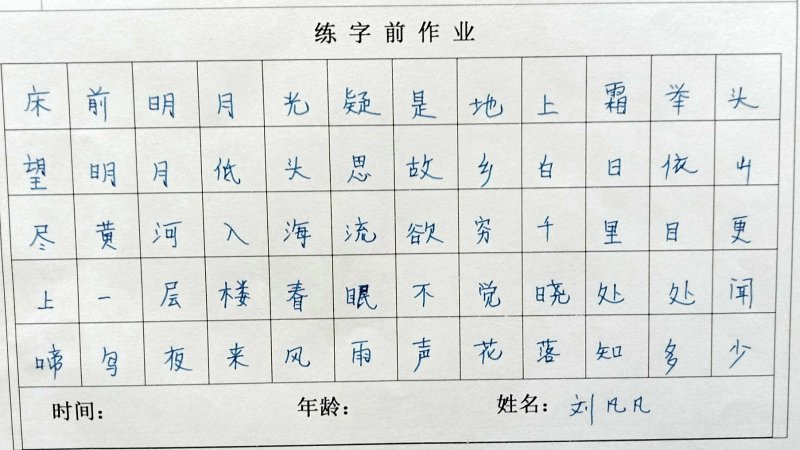 练字前作业
床前明月光疑是地上霜举头
望明月低头思故乡白日依山
尽黄河入海流欲穷千里目更
上一层楼春眠不觉晓处处闻
啼鸟夜来风雨声花落知多少
时间： 年龄： 姓名：刘凡凡